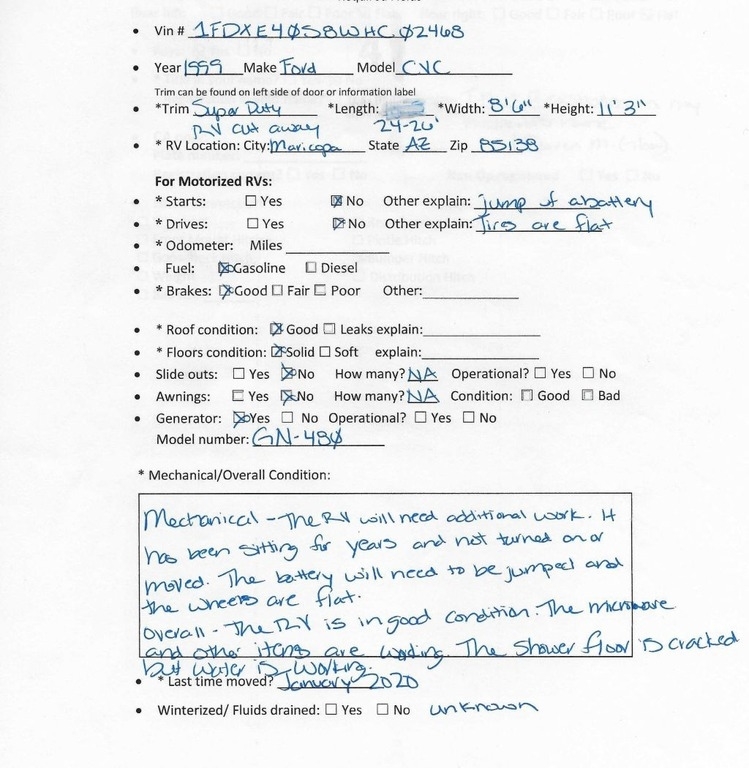 • Vin # 1FDXE40S8WHC02468
• Year 1999 Make Ford Model CVC
Trim can be found on left side of door or information label
• *Trim Super Duty *Length: *Width: 8'6" *Height: 11' 3"
RV cut away 24-26'
• * RV Location: City: Maricopa State AZ Zip 85138
For Motorized RVs:
• * Starts: ☐ Yes ☒ No Other explain: jump of a battery
• * Drives: ☐ Yes ☒ No Other explain: Tires are flat
• * Odometer: Miles
• Fuel: ☒ Gasoline ☐ Diesel
• * Brakes: ☒ Good ☐ Fair ☐ Poor Other:
• * Roof condition: ☒ Good ☐ Leaks explain:
• * Floors condition: ☒ Solid ☐ Soft explain:
• Slide outs: ☐ Yes ☒ No How many? NA Operational? ☐ Yes ☐ No
• Awnings: ☐ Yes ☒ No How many? NA Condition: ☐ Good ☐ Bad
• Generator: ☒ Yes ☐ No Operational? ☐ Yes ☐ No
Model number: GN-480
* Mechanical/Overall Condition:
Mechanical - The RV will need additional work. It
has been sitting for years and not turned on or
moved. The battery will need to be jumped and
the wheels are flat.
Overall - The RV is in good condition. The microwave
and other items are working. The shower floor is cracked
but water is working.
• * Last time moved? January 2020
• Winterized/ Fluids drained: ☐ Yes ☐ No unknown